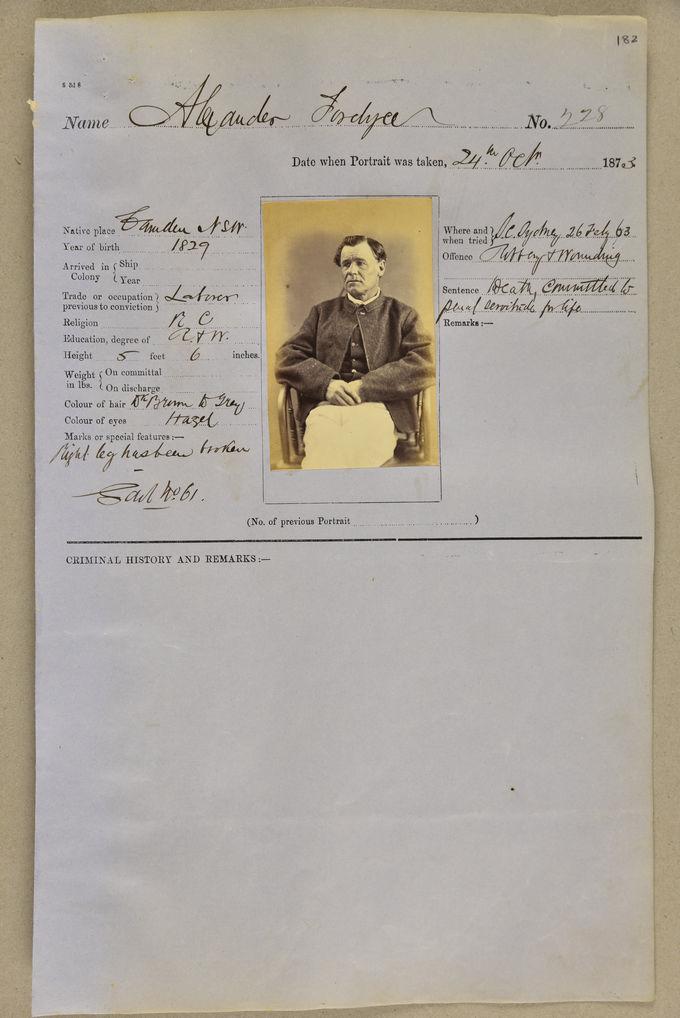 182
S 518
Name Alexander Fordyce No. 728
Date when Portrait was taken, 24th Octr. 1873
Native place Camden NSW.
Year of birth 1829
Arrived in Colony { Ship
Year
Trade or occupation previous to conviction } Laborer
Religion R C
Education, degree of R + W.
Height 5 feet 6 inches.
Weight in lbs. { On committal
On discharge
Colour of hair Dk Brown to Grey
Colour of eyes Hazel
Marks or special features:—
Right leg has been broken
Gaol No 61.
Where and when tried } S.C. Sydney 26 Feby 63
Offence Robbery & Wounding
Sentence Death, Committed to
penal servitude for life
Remarks:—
(No. of previous Portrait )
CRIMINAL HISTORY AND REMARKS:—